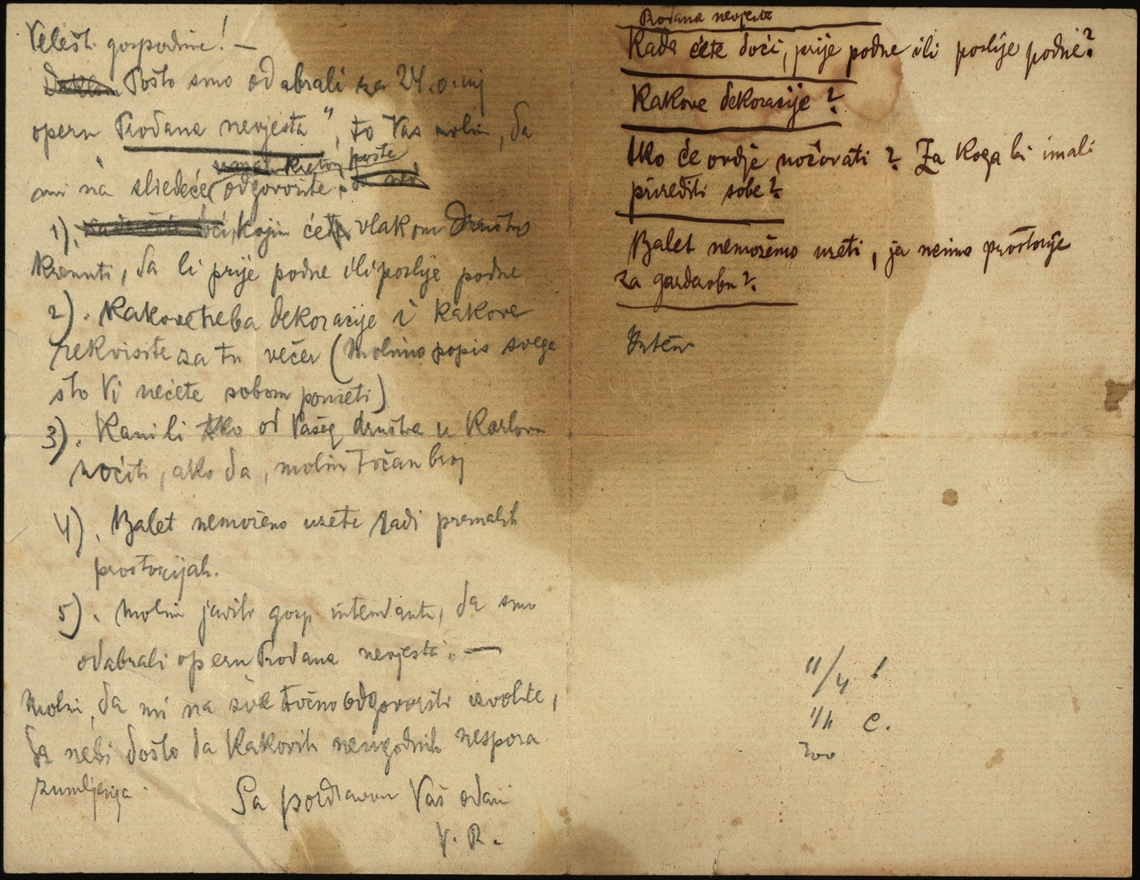 Velešt. gospodine! —
Pošto smo odabrali za 24. o. mj
operu "Prodana nevjesta", to Vas molim, da
poste
mi na sliedeće odgovorite:
1). kojim ćete vlakom Društvo
krenuti, da li prije podne ili poslije podne
2). Kakove treba dekoracije i kakove
rekvisite za tu večer (Molimo popis svega
što Vi nećete sobom ponieti)
3). Kani li tko od Vašeg društva u Karlovcu
noćiti, ako da, molim točan broj
4). Balet nemožemo uzeti radi premalih
prostorijah.
5). Molim javiti gosp intendantu, da smo
odabrali operu Prodana nevjesta. —
Molim, da mi na sve točno odgovoriti izvolite,
da nebi došlo da kakovih neugodnih nespora
zumljenja.
Sa pozdravom Vaš odani
V. R.
Prodana nevjesta
Kada ćete doći, prije podne ili poslije podne?
Kakove dekoracije?
Tko će ovdje noćivati? Za koga bi imali
prirediti sobe?
Balet nemožemo uzeti, jer neima prostorije
za garderobu?
Inten
11/4
1/2 c.
300